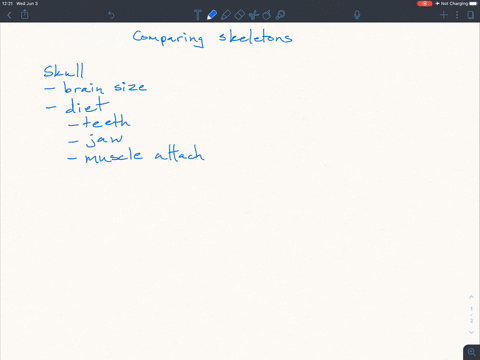 12:21 Wed Jun 3
Not Charging
Comparing skeletons
Skull
- brain size
- diet
- teeth
- jaw
- muscle attach